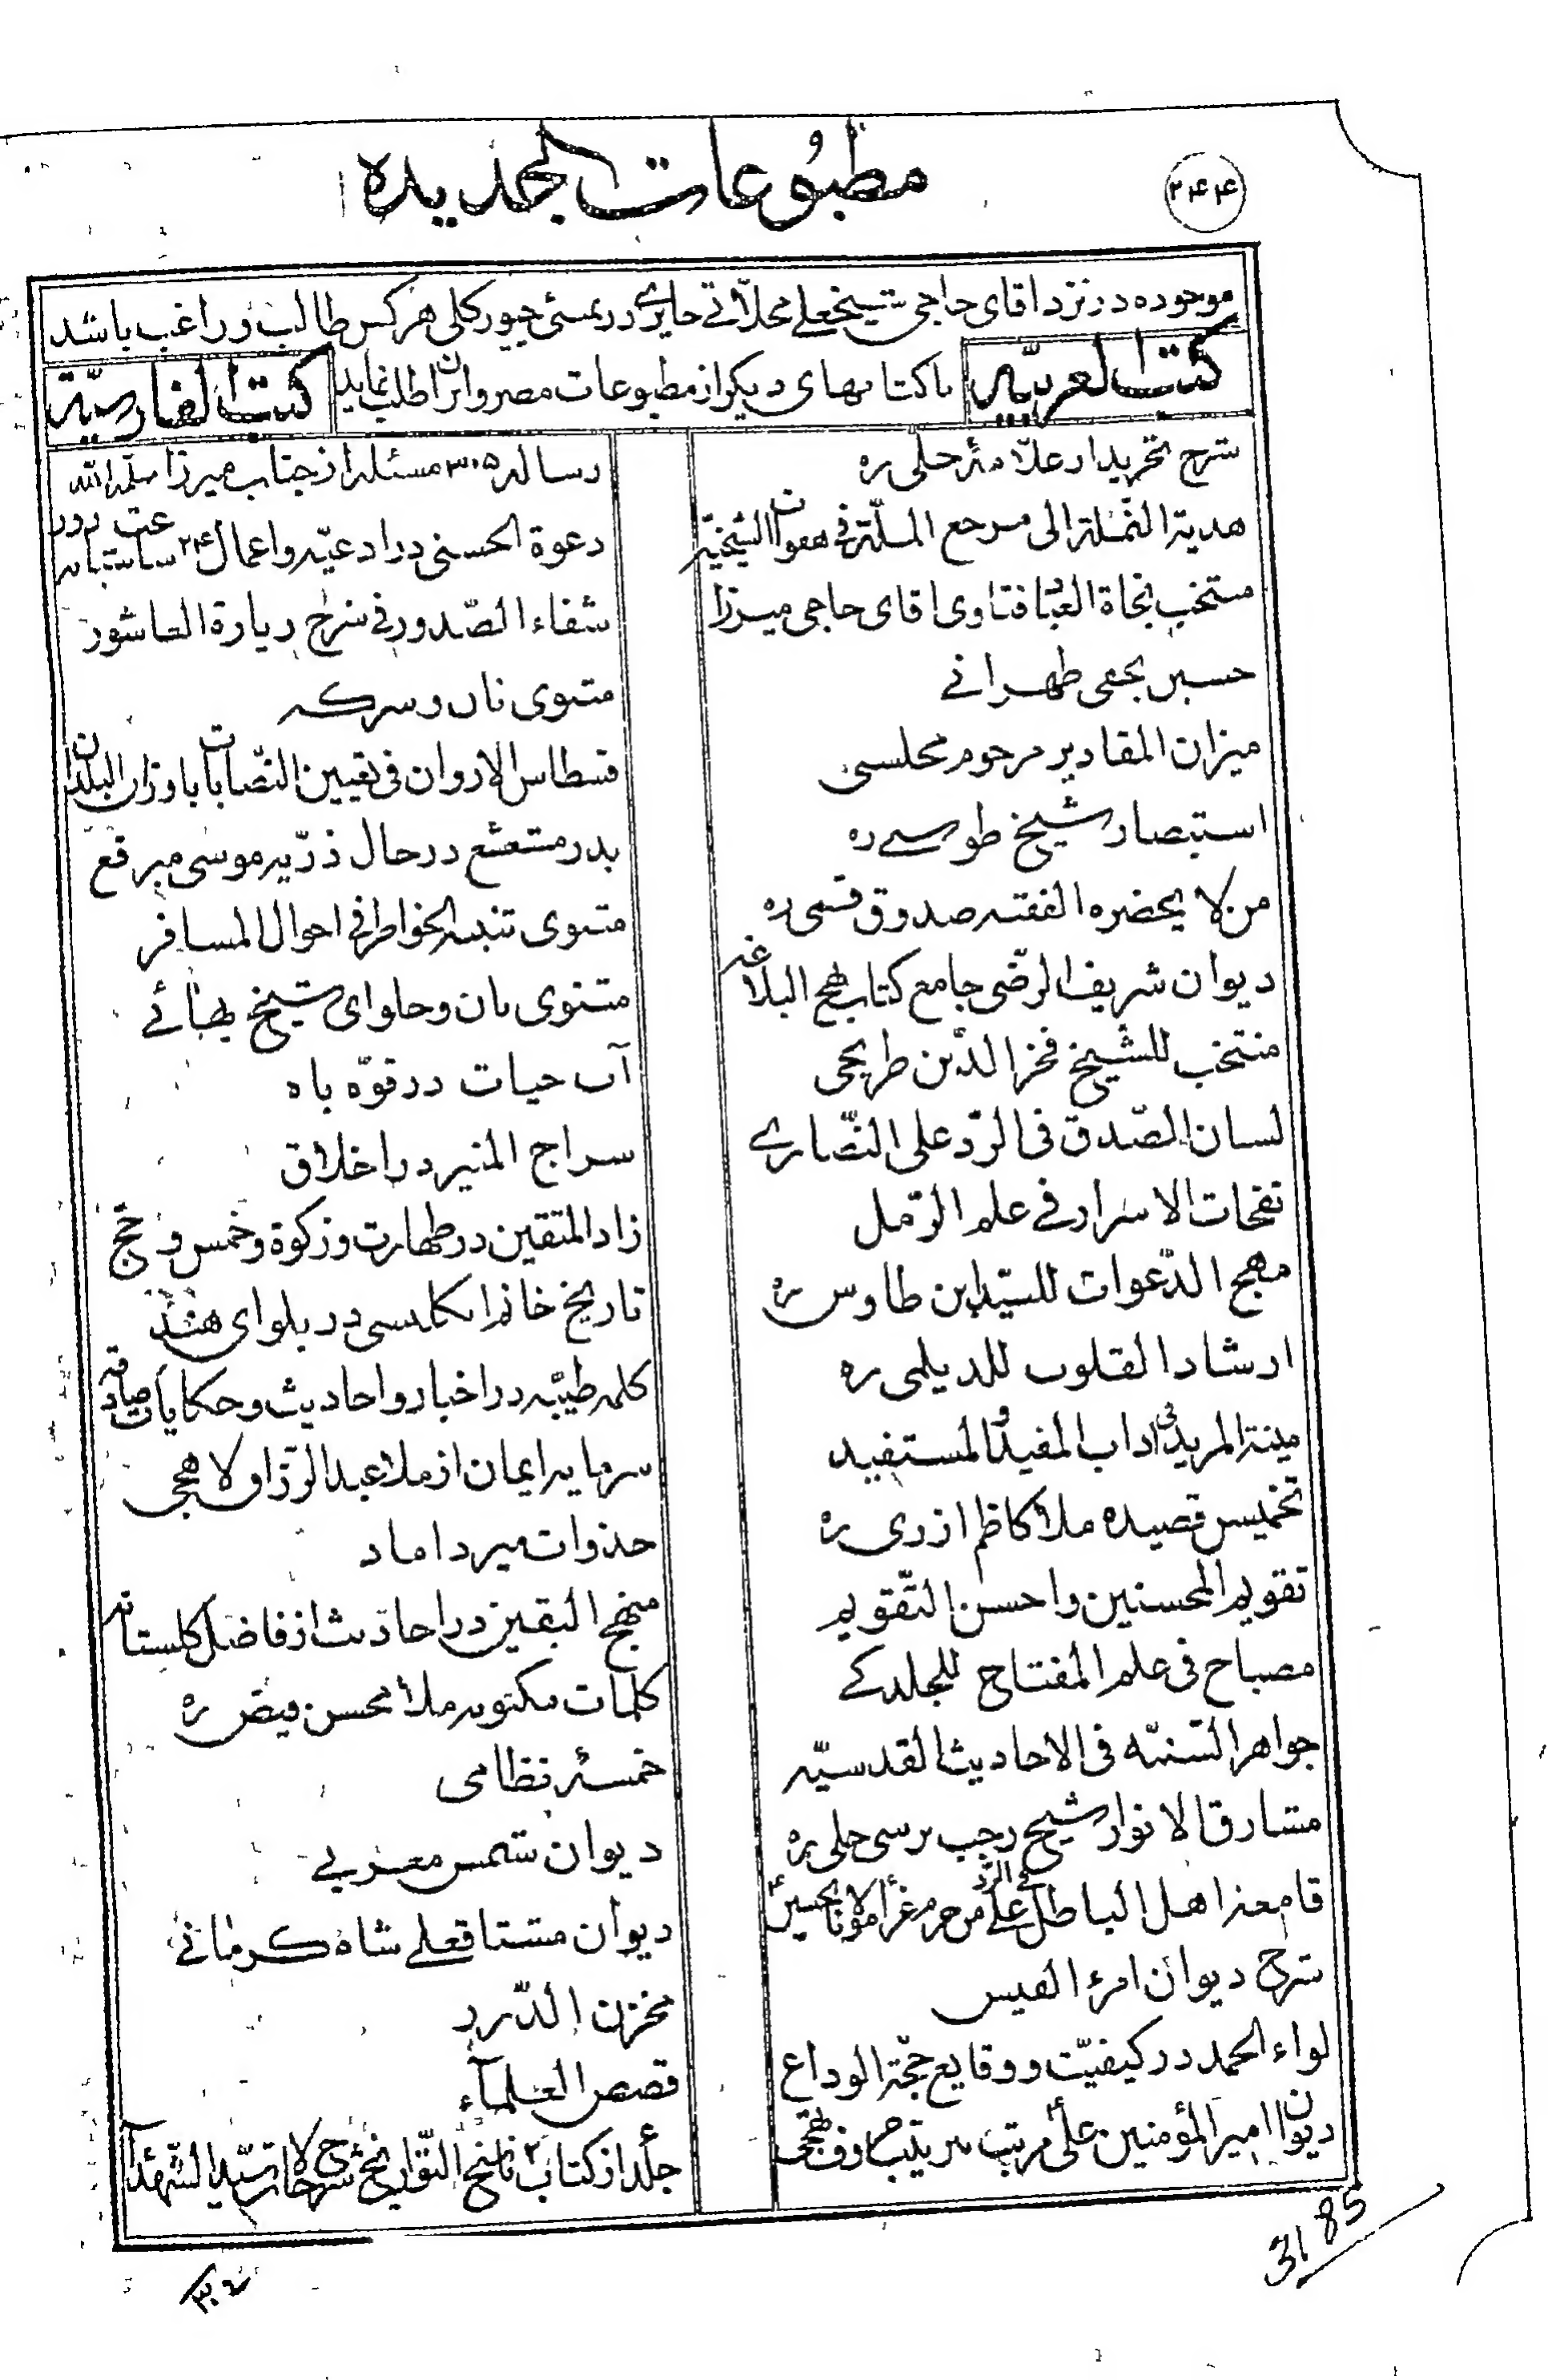 ۲۴۴
مطبُوعات الجدیده
موجوده در نزد اقای حاجی شیخعلی محلّاتی حایری در بمبئی جیور کلی هر کس طالب و راغب باشد
کتب العربیّه
با کتابهای دیکر از مطبوعات مصر و ایران اطلب نماید
کتب الفارسیّة
شرح تجرید از علّامهٔ حلی ره
هدیة النّملة الی مرجع الملّة فی هفوات الشیخیّه
منتخب نجاة العباد فتاوی اقای حاجی میرزا
حسین نجفی طهرانی
میزان المقادیر مرحوم مجلسی
استبصار شیخ طوسی ره
من لا یحضره الفقیه صدوق قمی ره
دیوان شریف الرّضی جامع کتاب نهج البلاغه
منتخب للشیخ فخر الدّین طریحی
لسان الصّدق فی الرّد علی النّصاری
نفحات الاسرار فی علم الرّمل
مهج الدّعوات للسیّد ابن طاوس ره
ارشاد القلوب للدیلمی ره
منیة المرید فی اداب المفید و المستفید
تخمیس قصیده ملا کاظم ازری ره
تقویم المحسنین و احسن التّقویم
مصباح فی علم المفتاح للجلدکی
جواهر السّنیّه فی الاحادیث القدسیّه
مشارق الانوار شیخ رجب برسی حلی ره
قامعة اهل الباطل فی الرّد علی من حرم عزاء مولانا الحسین ع
شرح دیوان امرء القیس
لواء الحمد در کیفیّت و وقایع حجّة الوداع
دیوان امیر المؤمنین علی ع مرتب بترتیب حروف تهجی
رساله ۳۰۵ مسئله از جناب میرزا سلمه الله
دعوة الحسنی در ادعیّه و اعمال ۲۴ ساعت شبانه روز
شفاء الصّدور فی شرح زیارة العاشور
مثنوی نان و سرکه
قسطاس الاوزان فی تعیین النّصابات باوزان البلدان
بدر مشعشع در حال ذرّیه موسی مبرقع
مثنوی تنبیه الخواطر فی احوال المسافر
مثنوی نان و حلوای شیخ بهائی
آب حیات در قوّه باه
سراج المنیر در اخلاق
زاد المتقین در طهارت و زکوة و خمس و حج
تاریخ خانم انکلیسی در بلوای هند
کلمه طیّبه در اخبار و احادیث و حکایات صادقه
سرمایه ایمان از ملا عبد الرّزاق لاهجی
جذوات میرداماد
منهج الیقین در احادیث از فاضل کلستانه
کلمات مکنونه ملا محسن فیض ره
خمسهٔ نظامی
دیوان شمس مغربی
دیوان مشتاقعلی شاه کرمانی
مخزن الدّرر
قصص العلماء
جلد از کتاب ناسخ التّواریخ شرح حالات سیّد الشّهداء
3185
۳۰۲